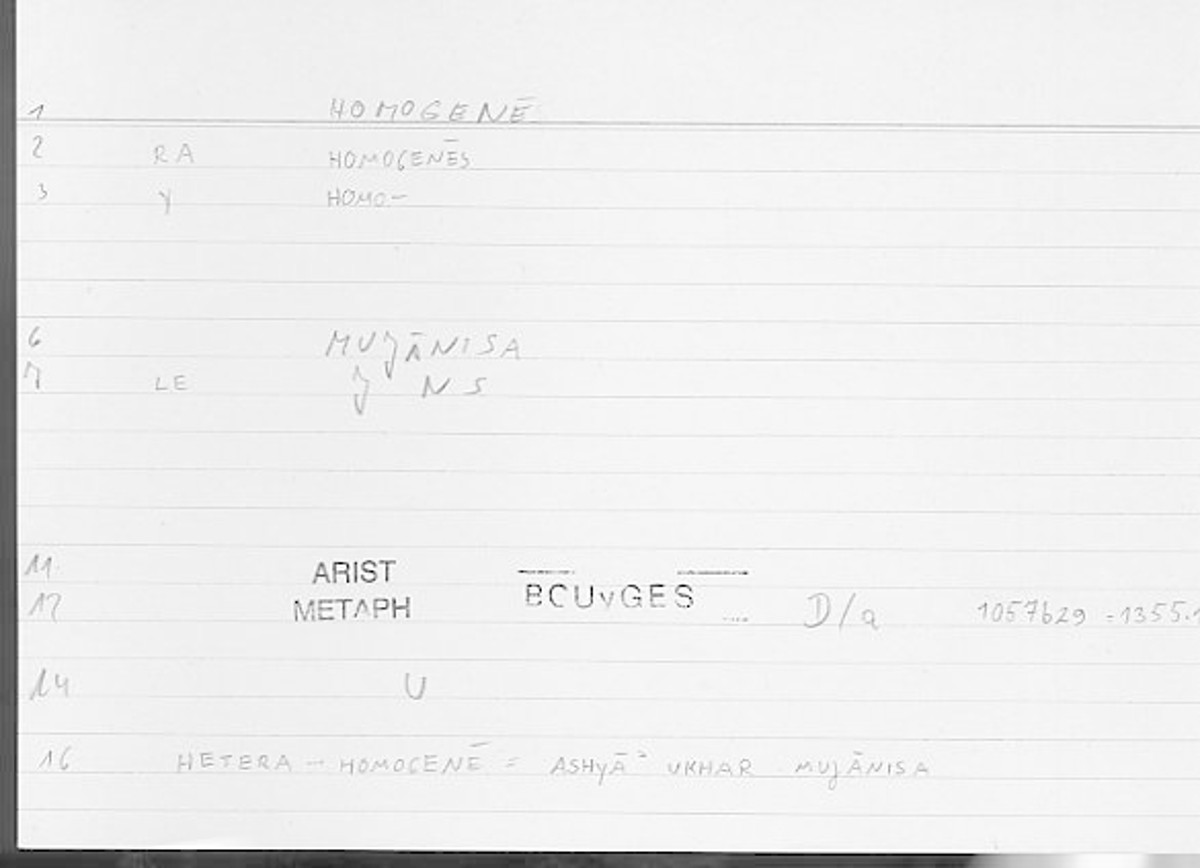 1 HOMOGENĒ
2 RA HOMOGENĒS
3 Y HOMO-
6 MUJĀNISA
7 LE J N S
11 ARIST
12 METAPH BCUvGES .... D/a 1057b29 = 1355.1
14 U
16 HETERA - HOMOGENĒ = ASHYĀʾ UKHAR MUJĀNISA